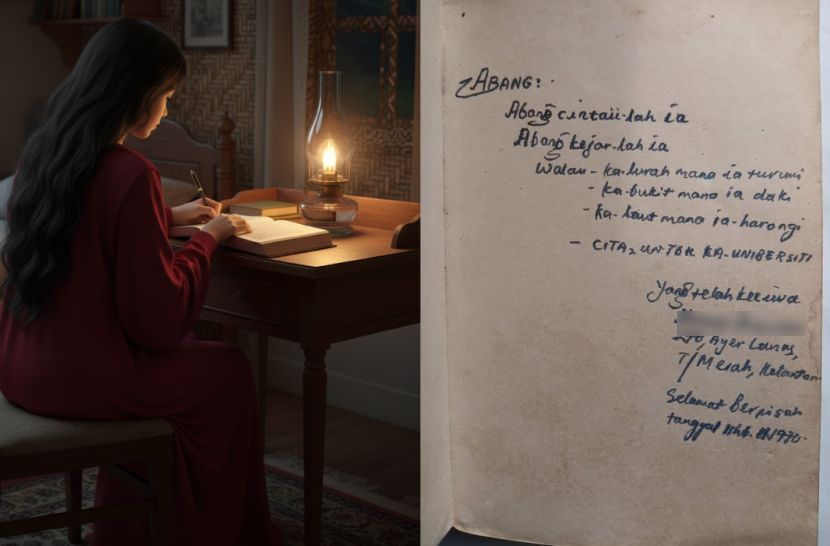 ABANG:
Abang cintaii-lah ia
Abang kejar-lah ia
Walau - ka-lurah mana ia turuni
- ka-bukit mana ia daki
- ka-laut mana ia-harongi
- CITA2 UNTOK KA-UNIBERSITI
Yang telah keciwa
Ayer Lanas,
T/Merah, Kelantan
Selamat Berpisah
tanggal 1970.